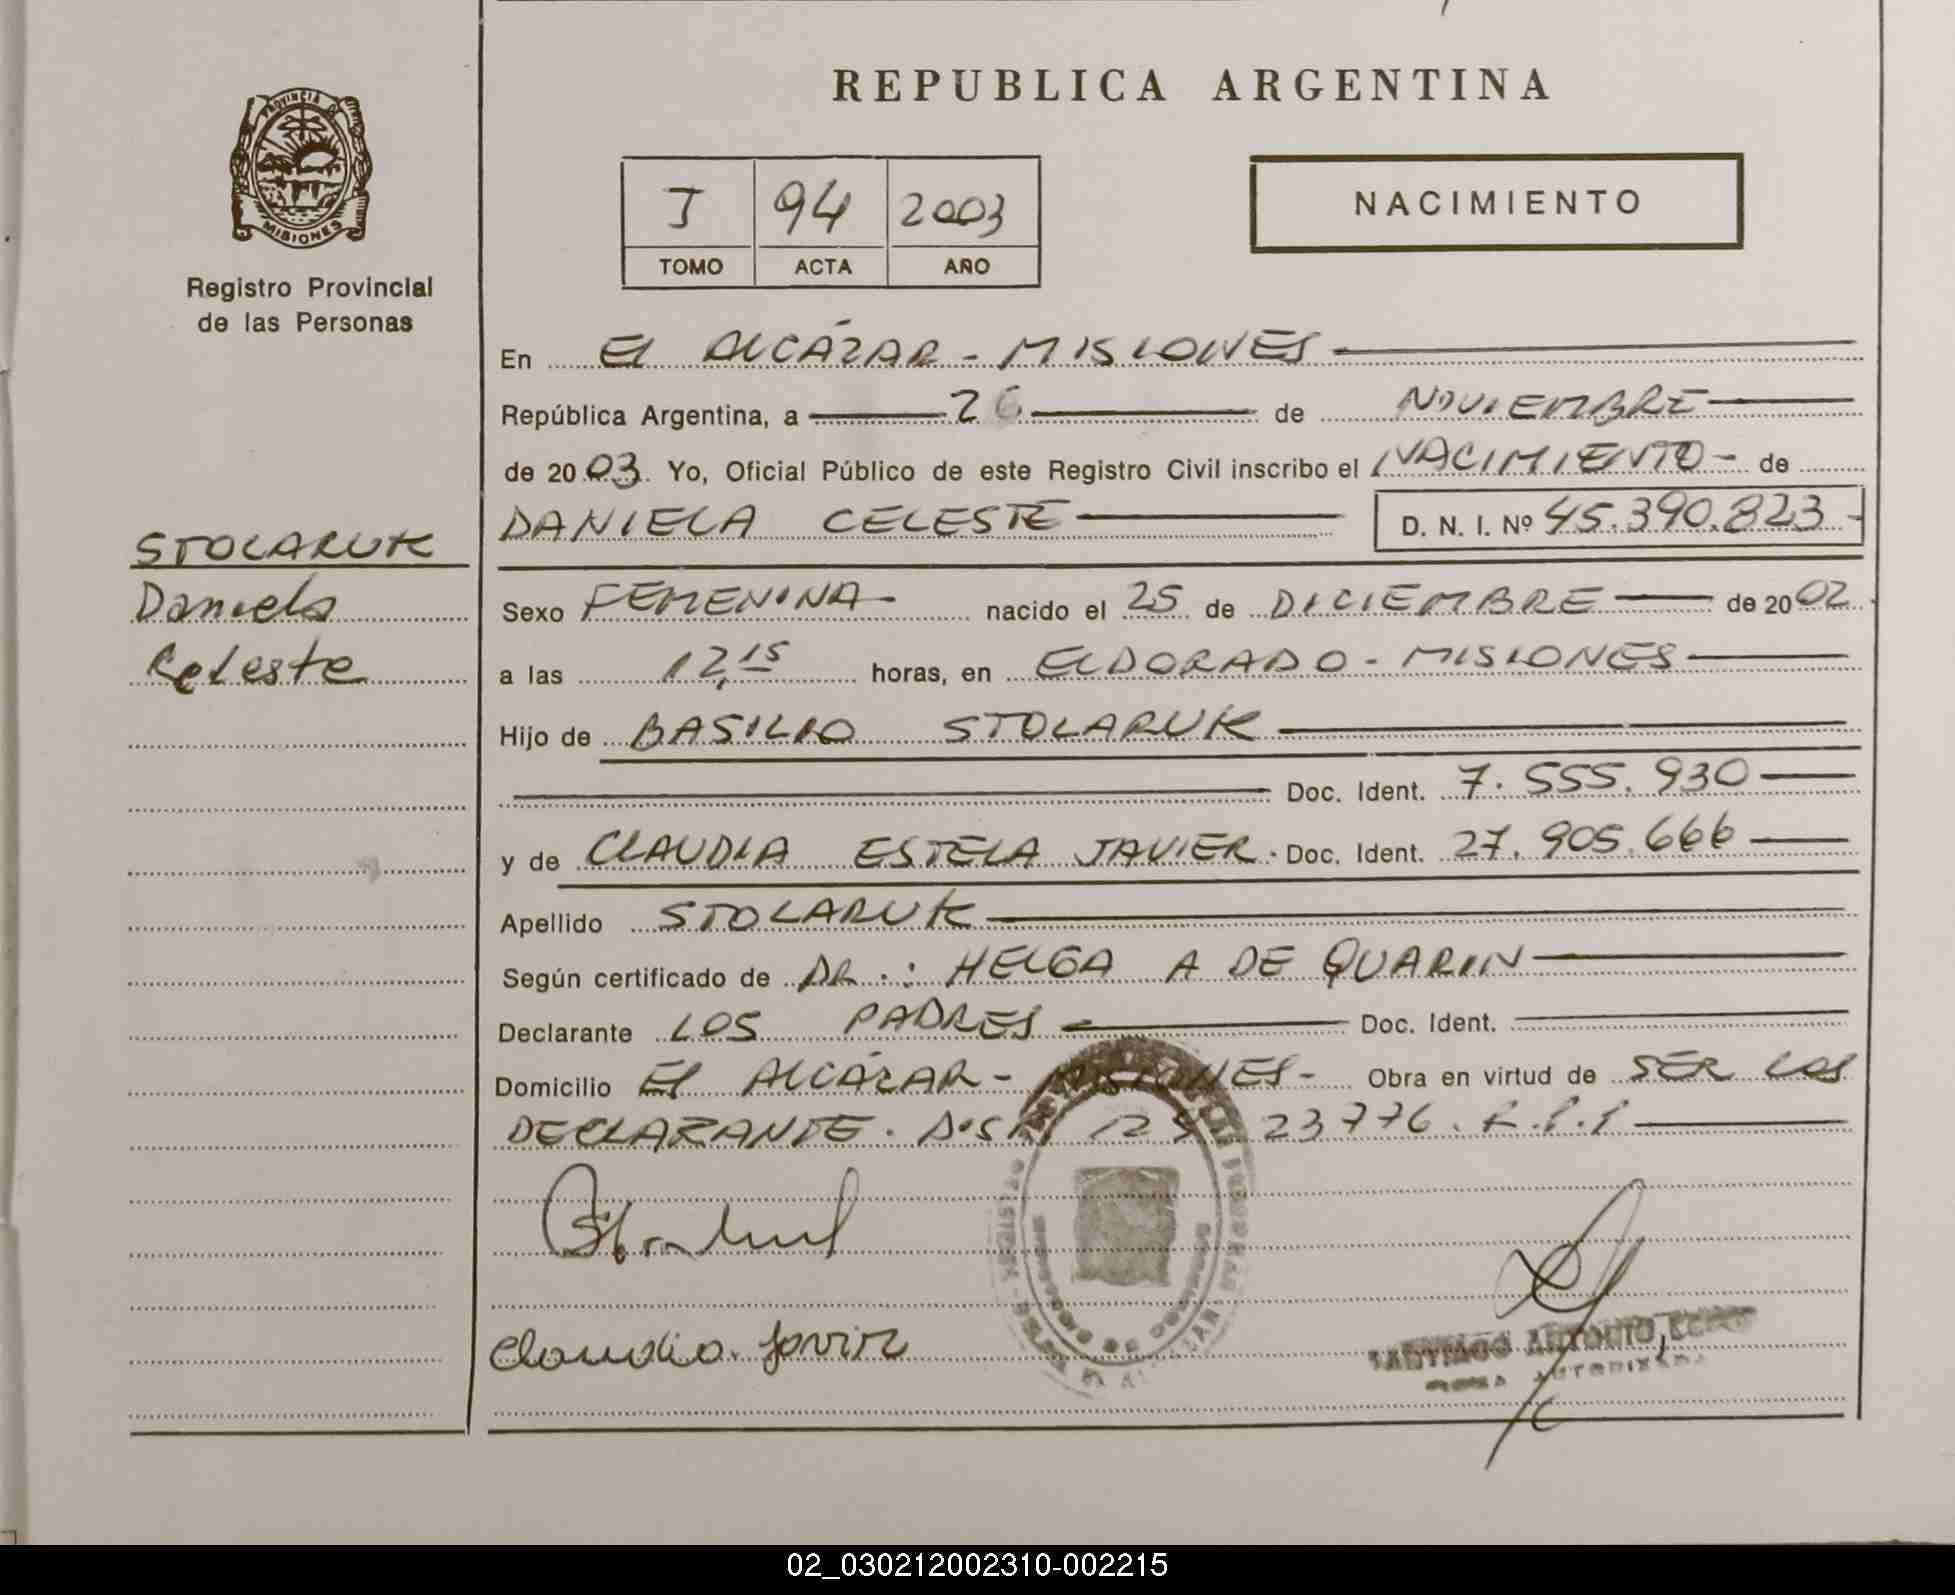 REPUBLICA ARGENTINA
PROVINCIA DE
MISIONES
Registro Provincial
de las Personas
J 94 2003
TOMO ACTA AÑO
NACIMIENTO
En EL ALCÁZAR - MISIONES
República Argentina, a 26 de NOVIEMBRE
de 2003. Yo, Oficial Público de este Registro Civil inscribo el NACIMIENTO - de
DANIELA CELESTE D. N. I. Nº 45.390.823 -
STOLARUK
Daniela
Celeste
Sexo FEMENINA - nacido el 25 de DICIEMBRE de 2002
a las 12,15 horas, en ELDORADO - MISIONES
Hijo de BASILIO STOLARUK
Doc. Ident. 7.555.930
y de CLAUDIA ESTELA JAVIER. Doc. Ident. 27.905.666
Apellido STOLARUK
Según certificado de DR.: HELGA A DE QUARIN
Declarante LOS PADRES Doc. Ident.
Domicilio EL ALCÁZAR - MISIONES - Obra en virtud de SER LOS
DECLARANTE. 23776. R.P.P
Claudia. Javier
SANTIAGO ANTONIO
AUTORIZADA
02_030212002310-002215